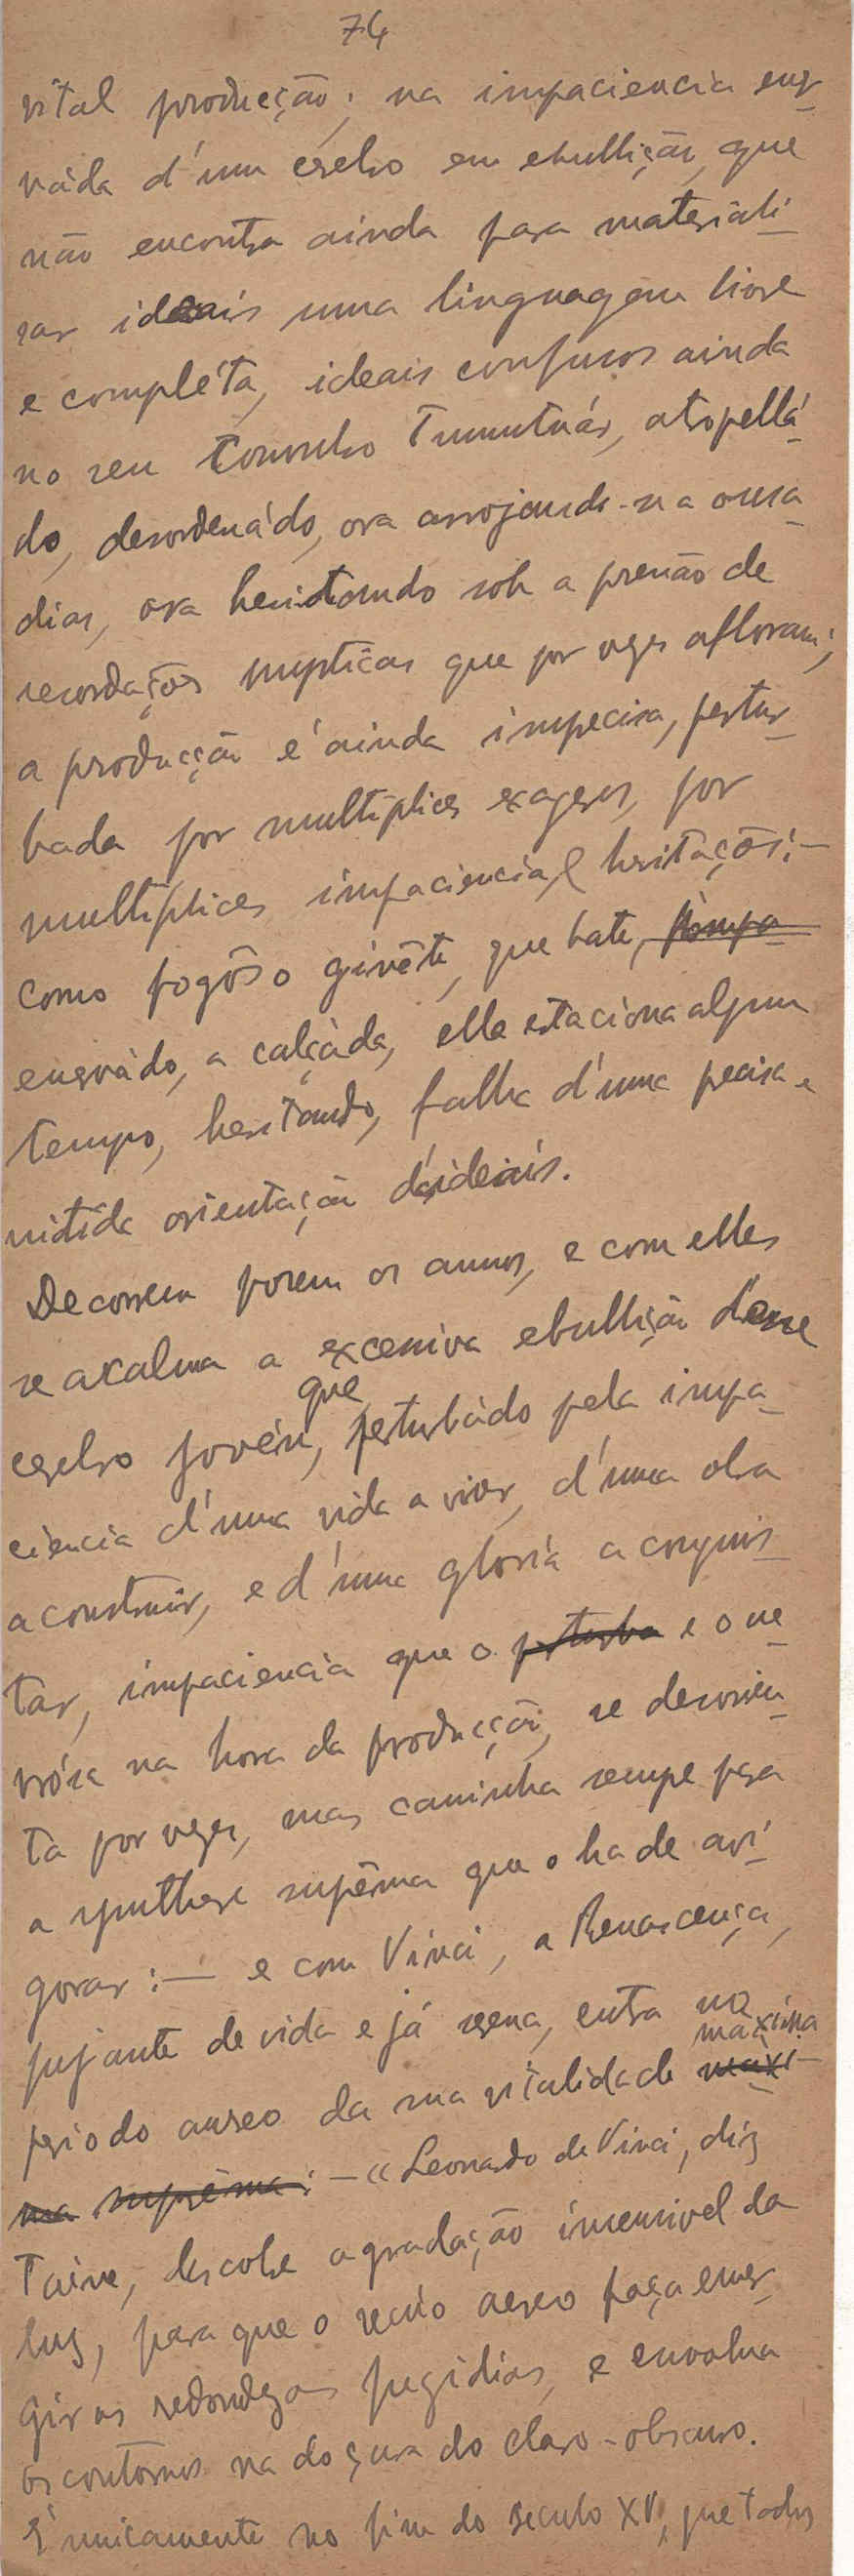 74
vital producção; na impaciencia ener
váda d'um cerebro em ebullição, que
não encontra ainda para materiali
sar ideais uma linguagem livre
e compléta, ideais confusos ainda
no seu tumultuár, atropellá
do, desordenádo, ora arrojando-se a ousa
dias, ora hesitando sob a pressão de
recordações mysticas que por vezes afloram;
a producção é ainda imprecisa, pertur
bada por multiplices exageros, por
multiplices impaciencias e hesitações:—
como fogôso ginête, que bate,
enervádo, a calçáda, ella estaciona algum
tempo, hesitando, falha d'uma precisa e
nitida orientação d'ideiais.
Decorrem porem os annos, e com elles
se acalma a excessiva ebullição d'esse
cerebro jovén, que perturbádo pela impa
ciencia d'uma vida a viver, d'uma obra
a construir, e d'uma gloria a conquis
tar, impaciencia que o perturba e o ne
vrósa na hora da producção, se desorien
ta por vezes, mas caminha sempre para
a synthese suprêma que o ha de avi
gorar:— e com Vinci, a Renascença,
pujante de vida e já serena, entra no
periodo aureo da sua vitalidade maxima
ma suprêma: —«Leonardo de Vinci, diz
Taine, descobre a gradação insensivel da
luz, para que o recuo aereo faça emer
gir as redondezas fugidias, e envolva
os contornos na doçura do claro-obscuro.
É unicamente no fim do seculo XV, que todos